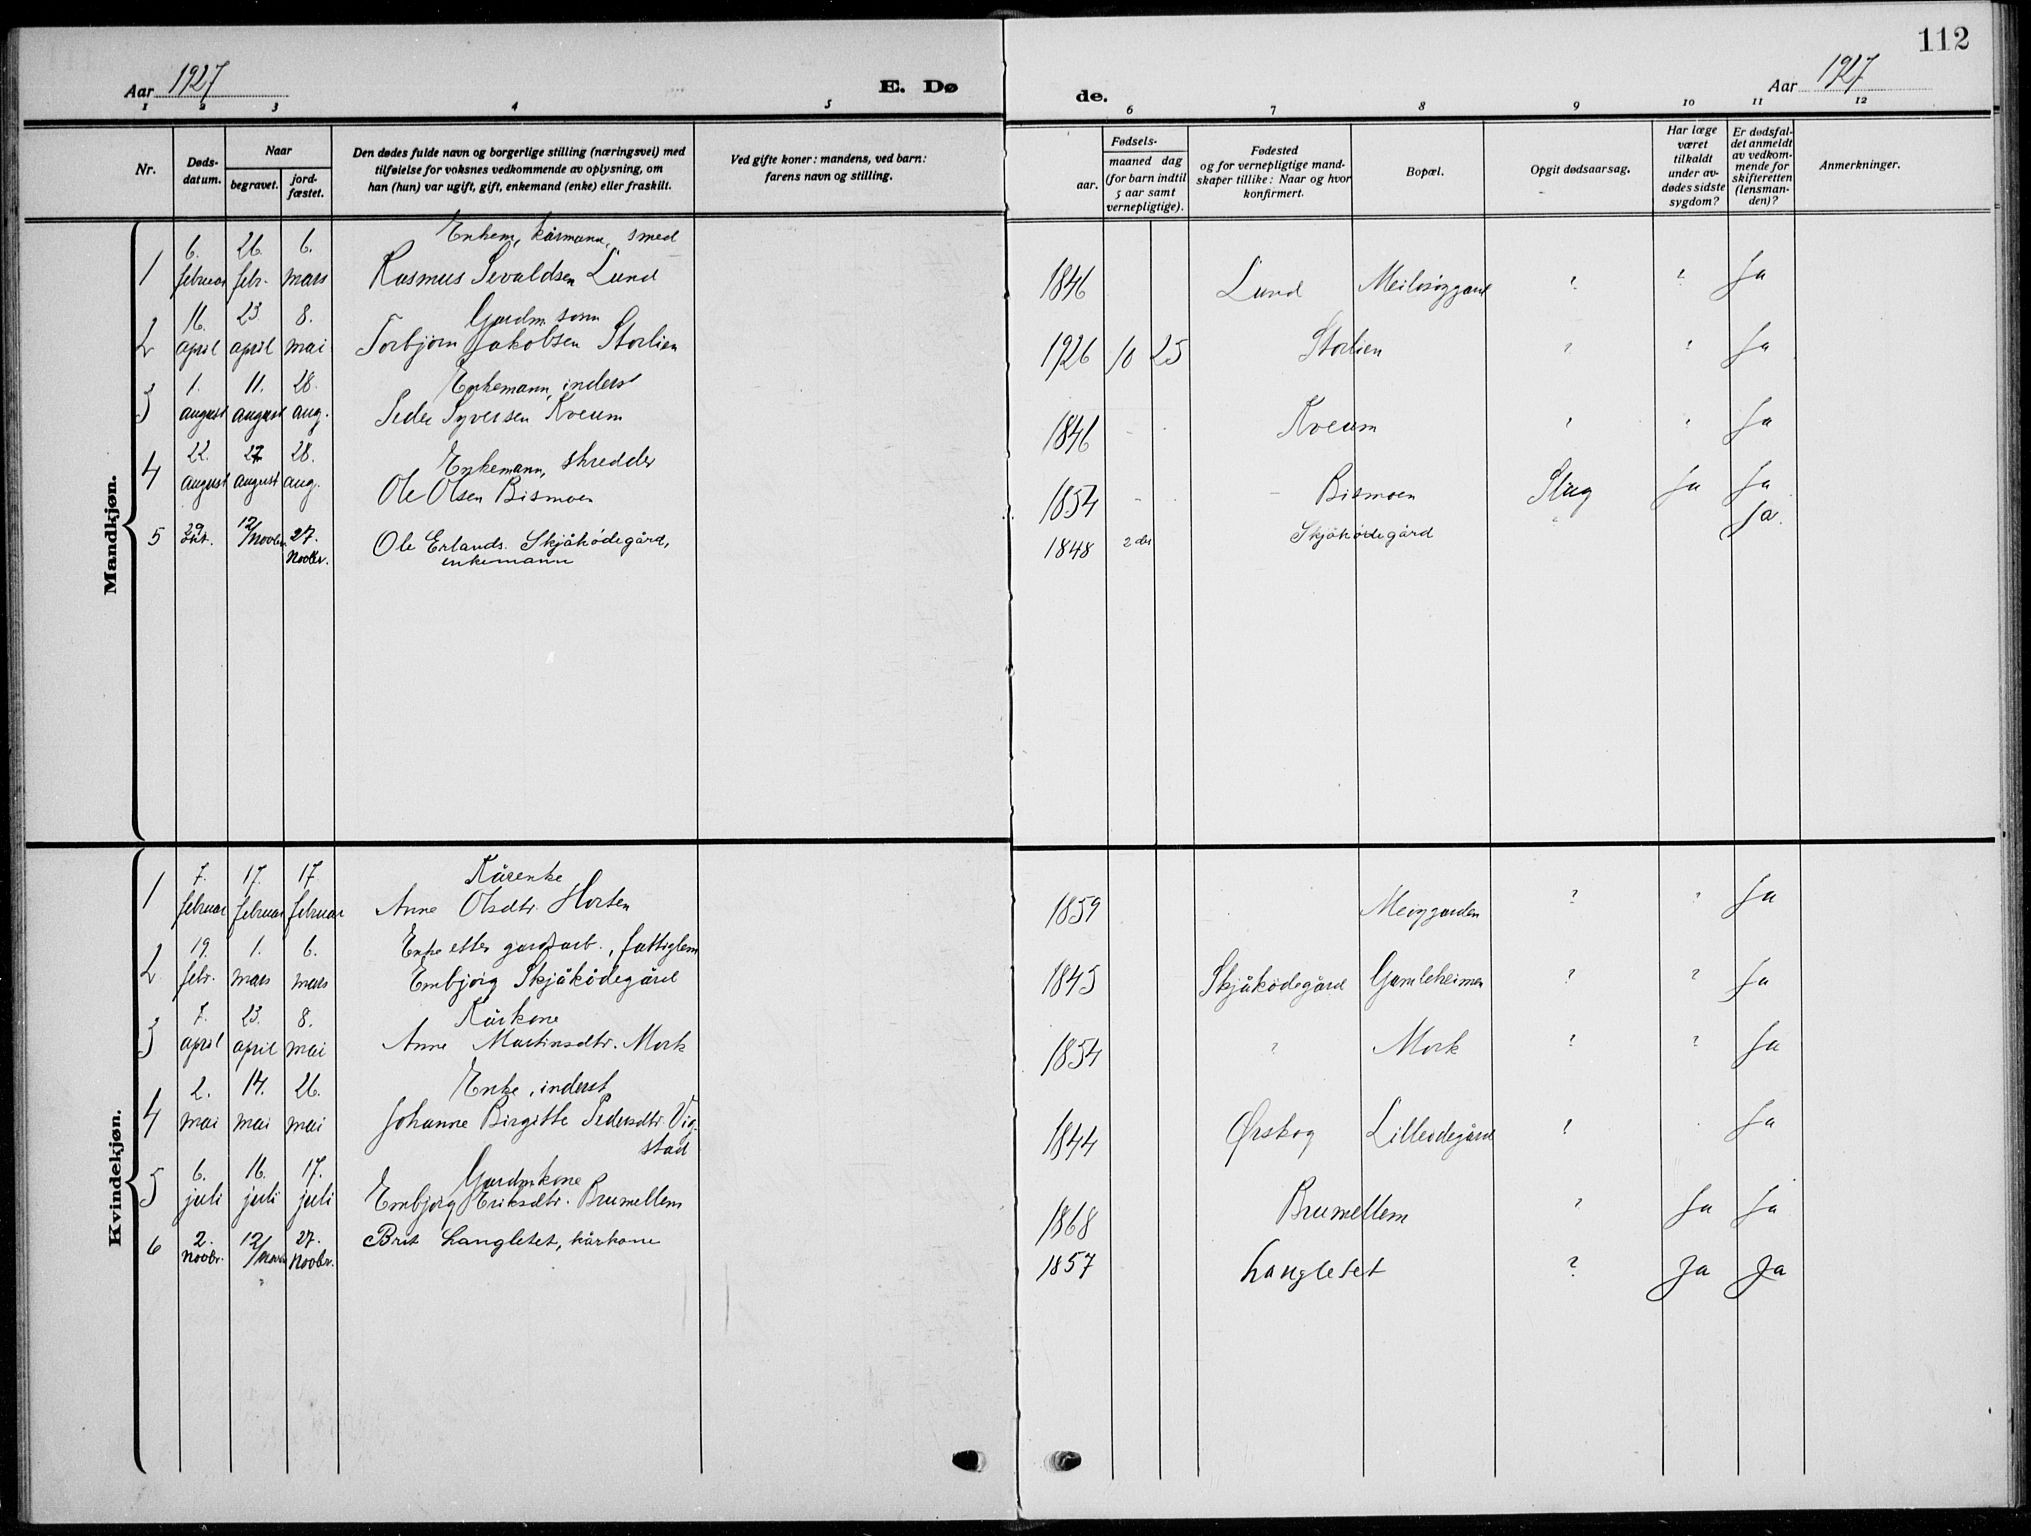 112
Aar 1927
E. Dø
de.
Aar 1927
1 2 3 4 5 6 7 8 9 10 11 12
Nr.
Døds-
datum.
Naar
begravet.
jord-
fæstet.
Den dødes fulde navn og borgerlige stilling (næringsvei) med
tilføielse for voksnes vedkommende av oplysning, om
han (hun) var ugift, gift, enkemand (enke) eller fraskilt.
Ved gifte koner: mandens, ved barn:
farens navn og stilling.
Fødsels-
aar.
maaned dag
(for barn indtil
5 aar samt
vernepligtige).
Fødested
og for vernepligtige mand-
skaper tillike: Naar og hvor
konfirmert.
Bopæl.
Opgit dødsaarsag.
Har læge
været
tilkaldt
under av-
dødes sidste
sygdom?
Er dødsfal-
det anmeldt
av vedkom-
mende for
skifteretten
(lensman-
den)?
Anmerkninger.
Mandkjøn.
6. 26. 6. Enkem, kårmann, smed
1 februar febr. mars Rasmus Sevaldsen Lund 1846 Lund ? ? Ja
16. 23. 8. Gardm. sønn
2 april april mai Torbjørn Jakobsen Storlien 1926 10 25 Storlien ? ? Ja
1. 11. 28. Enkemann, inderst
3 august august aug. Peder Syversen Kveum 1846 - - Kveum ? ? Ja
22. 27. 28. Enkemann, skredder
4 august august aug. Ole Olsen Bismoen 1854 - - - Bismoen Slag Ja Ja
5 29. Okt. 12/Novbr. 27. Novbr. Ole Erlands. Skjåkødegård, 1848 2 des Skjåkødegård " Ja.
enkemann
Kvindekjøn.
7. 17. 17. Kårenke
1 februar februar februar Anne Olsdtr. Horten 1859 ? ? Ja
19. 1. 6. Enke etter gardarb., fattiglem
2 febr. mars mars Embjørg Skjåkødegård 1845 Skjåkødegård Gamleheimen ? ? Ja
7. 23. 8. Kårkone
3 april april mai Anne Martinsdtr. Mork 1854 ? Mork ? ? Ja
2. 14. 26. Enke, inderst
4 mai mai mai Johanne Birgitte Pedersdtr. Vig-
stad 1844 Ørskog Lilleødegård ? Ja
6. 16. 17. Gardmkone
5 juli juli juli Embjørg Eriksdtr. Brumellem 1868 Brumellem ? Ja Ja
6 2. Novbr. 12/Novbr. 27. Novbr. Brit Langleset, kårkone 1857 Langleset ? Ja Ja